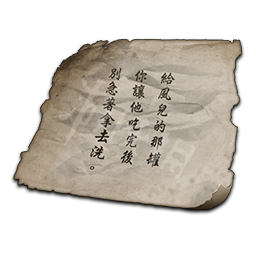 給風兒的那罐
你讓他吃完後
別急著拿去洗。